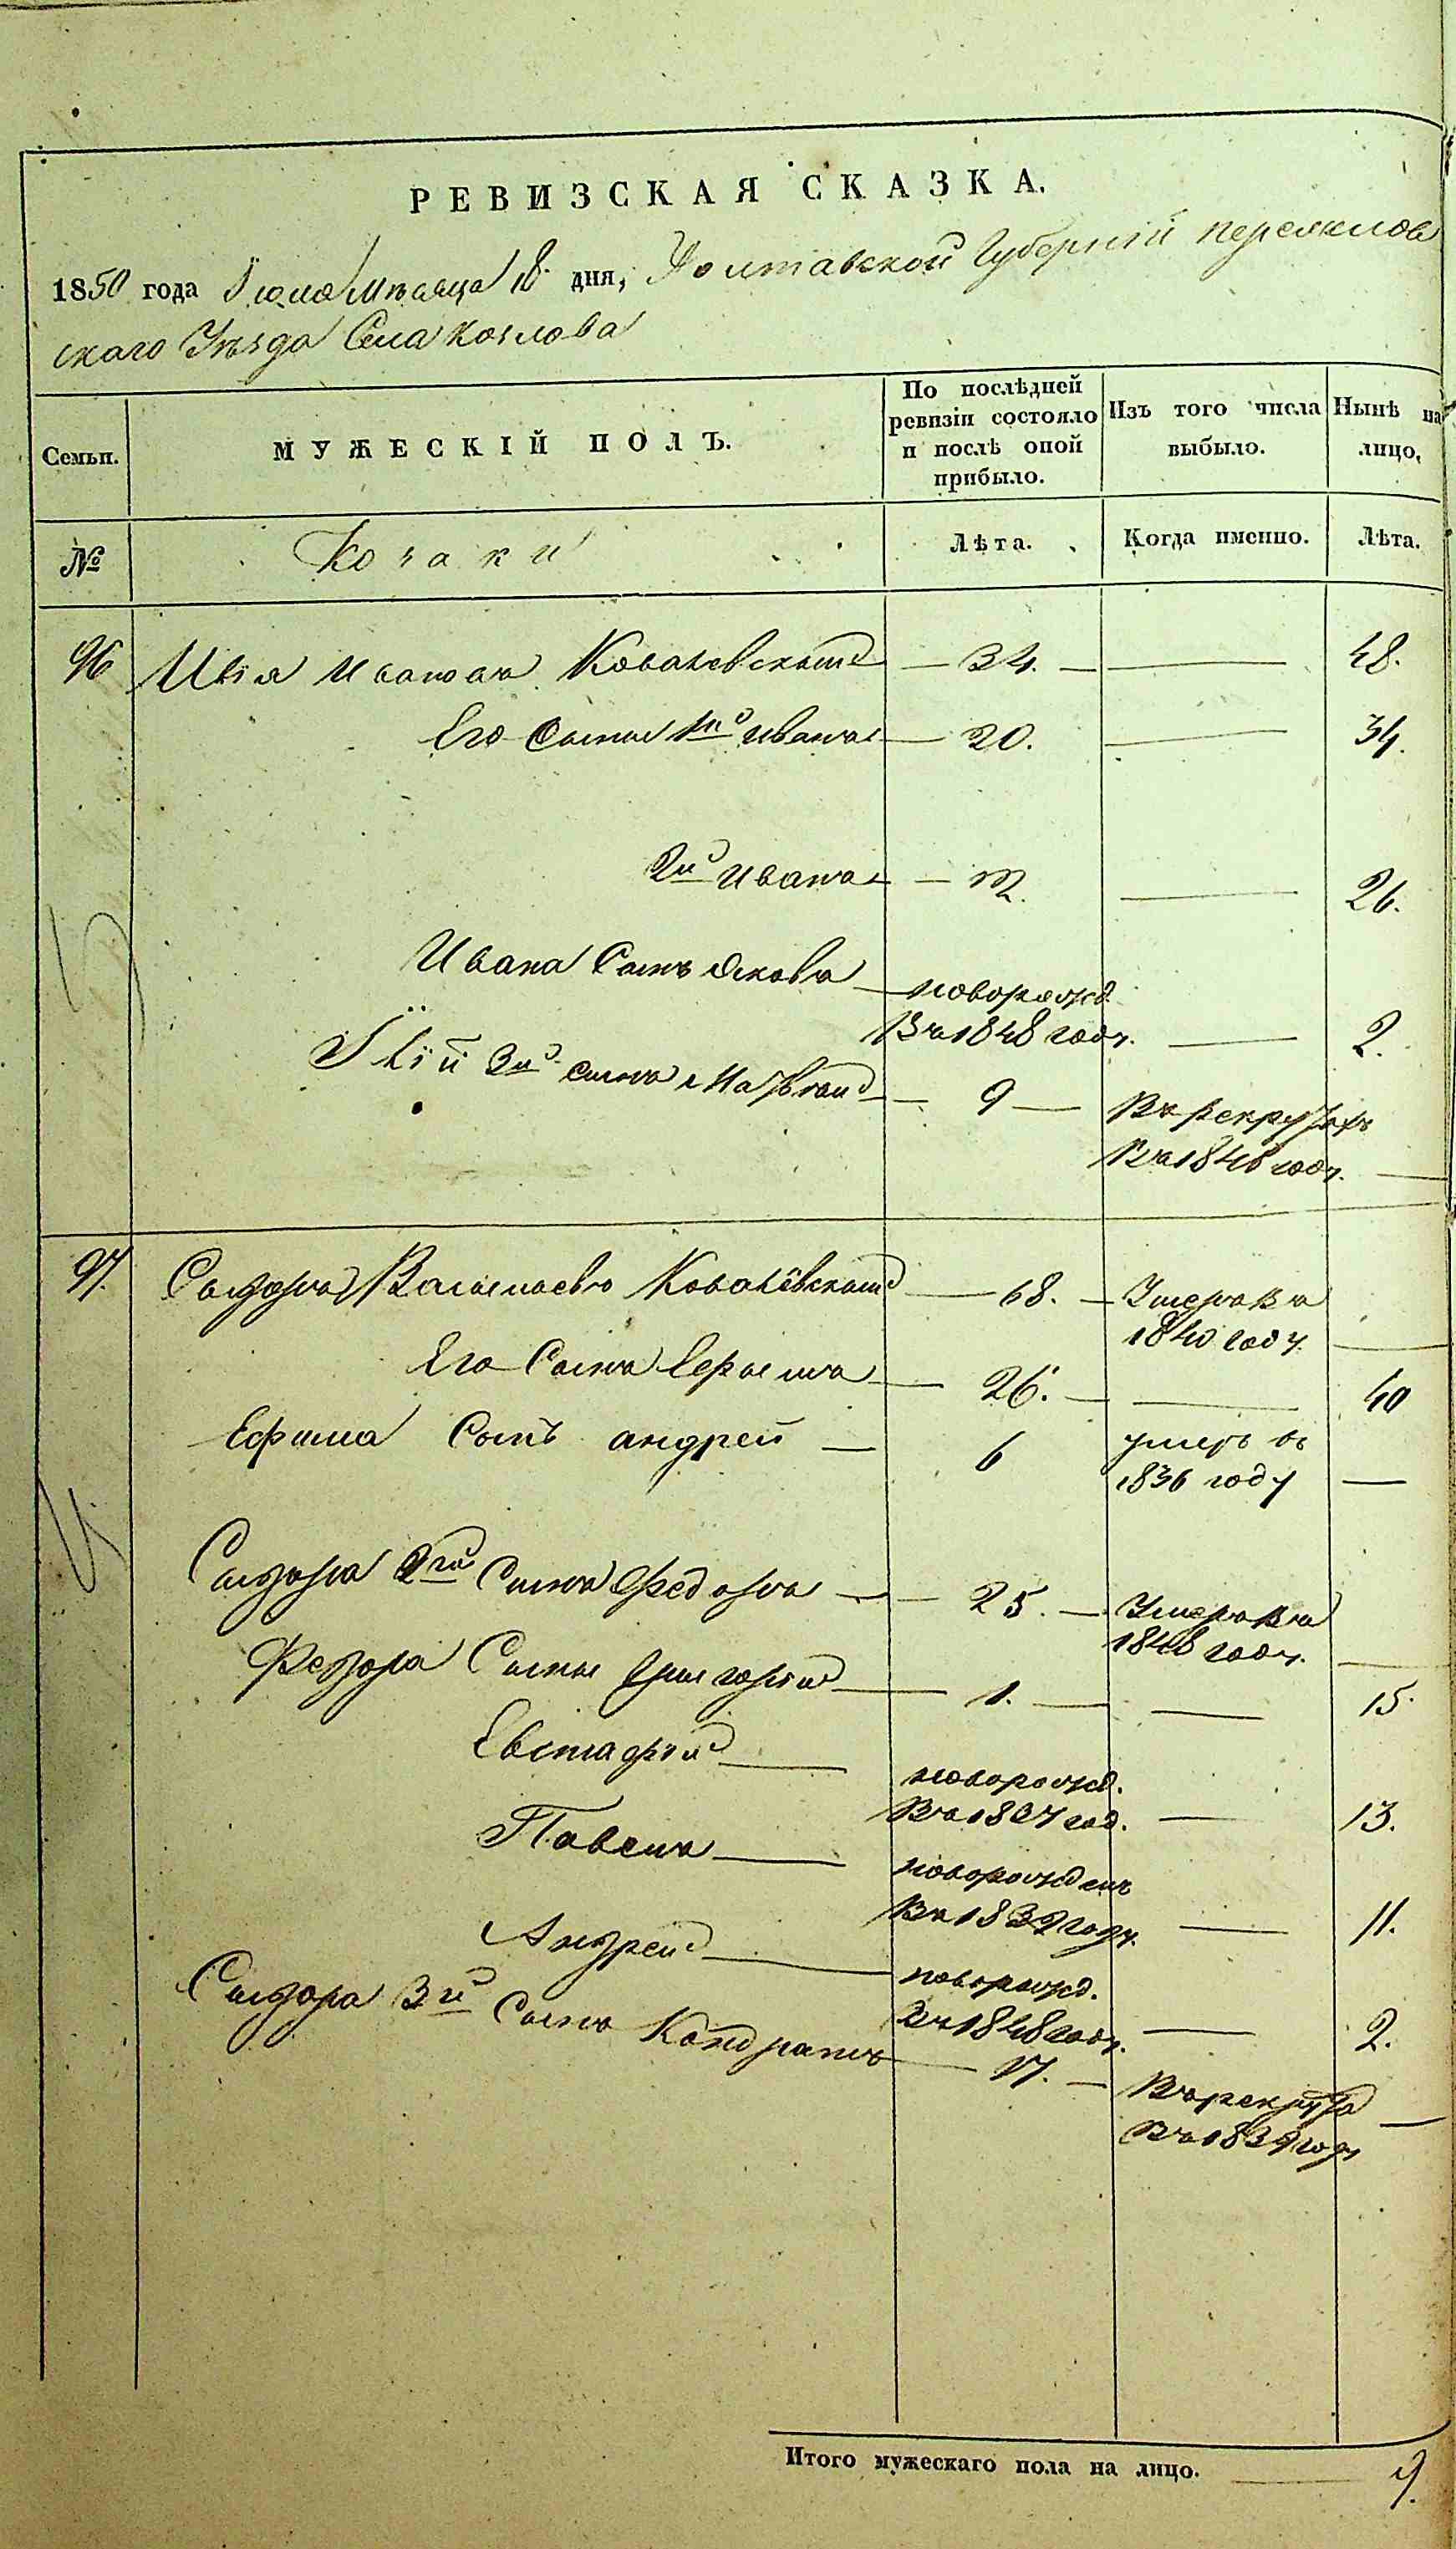 РЕВИЗСКАЯ СКАЗКА.
1850 года Июля Мѣсяца 18 дня, Полтавской Губерніи переяслов
скаго Уѣзда Села Козлова
Семьи. МУЖЕСКІЙ ПОЛЪ. По послѣдней ревизіи состояло и послѣ оной прибыло. Изъ того числа выбыло. Нынѣ на лицо,
№ Козаки Лѣта. Когда именно. Лѣта.
96 Ивановъ Ковалевскій — 34. — — 48.
Его Сынъ Иванъ — 20. — 34.
2й Иванъ — — 26.
Ивана Сынъ Яковъ — новорожд.
Въ 1848 году. — 2.
3й сынъ Матвѣй — 9 — Въ рекрутахъ
Въ году. —
97. Сидоръ Васильевъ Ковалевскій — 68. — Умеръ Въ
1840 году. —
Его Сынъ — 26. — — 40
Ефима Сынъ андрей — 6 умеръ въ
1836 году —
Сидора 2й Сынъ Федоръ — 25. — Умеръ Въ
1848 году. —
Федора Сынъ Григорій — 1. — — 15.
Евстафій — новорожд.
Въ 1837 год. — 13.
Павелъ — новорожденъ
Въ 1839 году. — 11.
Андрей — новорожд.
Въ 1848 году. — 2.
Сидора 3й Сынъ Кондратъ — 17. — Въ рекруты
Въ году —
Итого мужескаго пола на лицо. — 9.